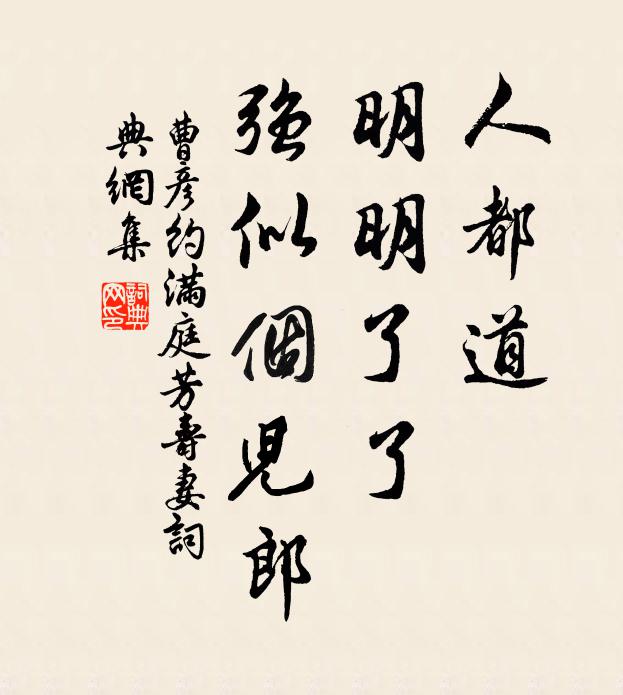 人都道
明明了了
強似個児郎
曹彦約滿庭芳壽妻詞
典網集
詞典
网印